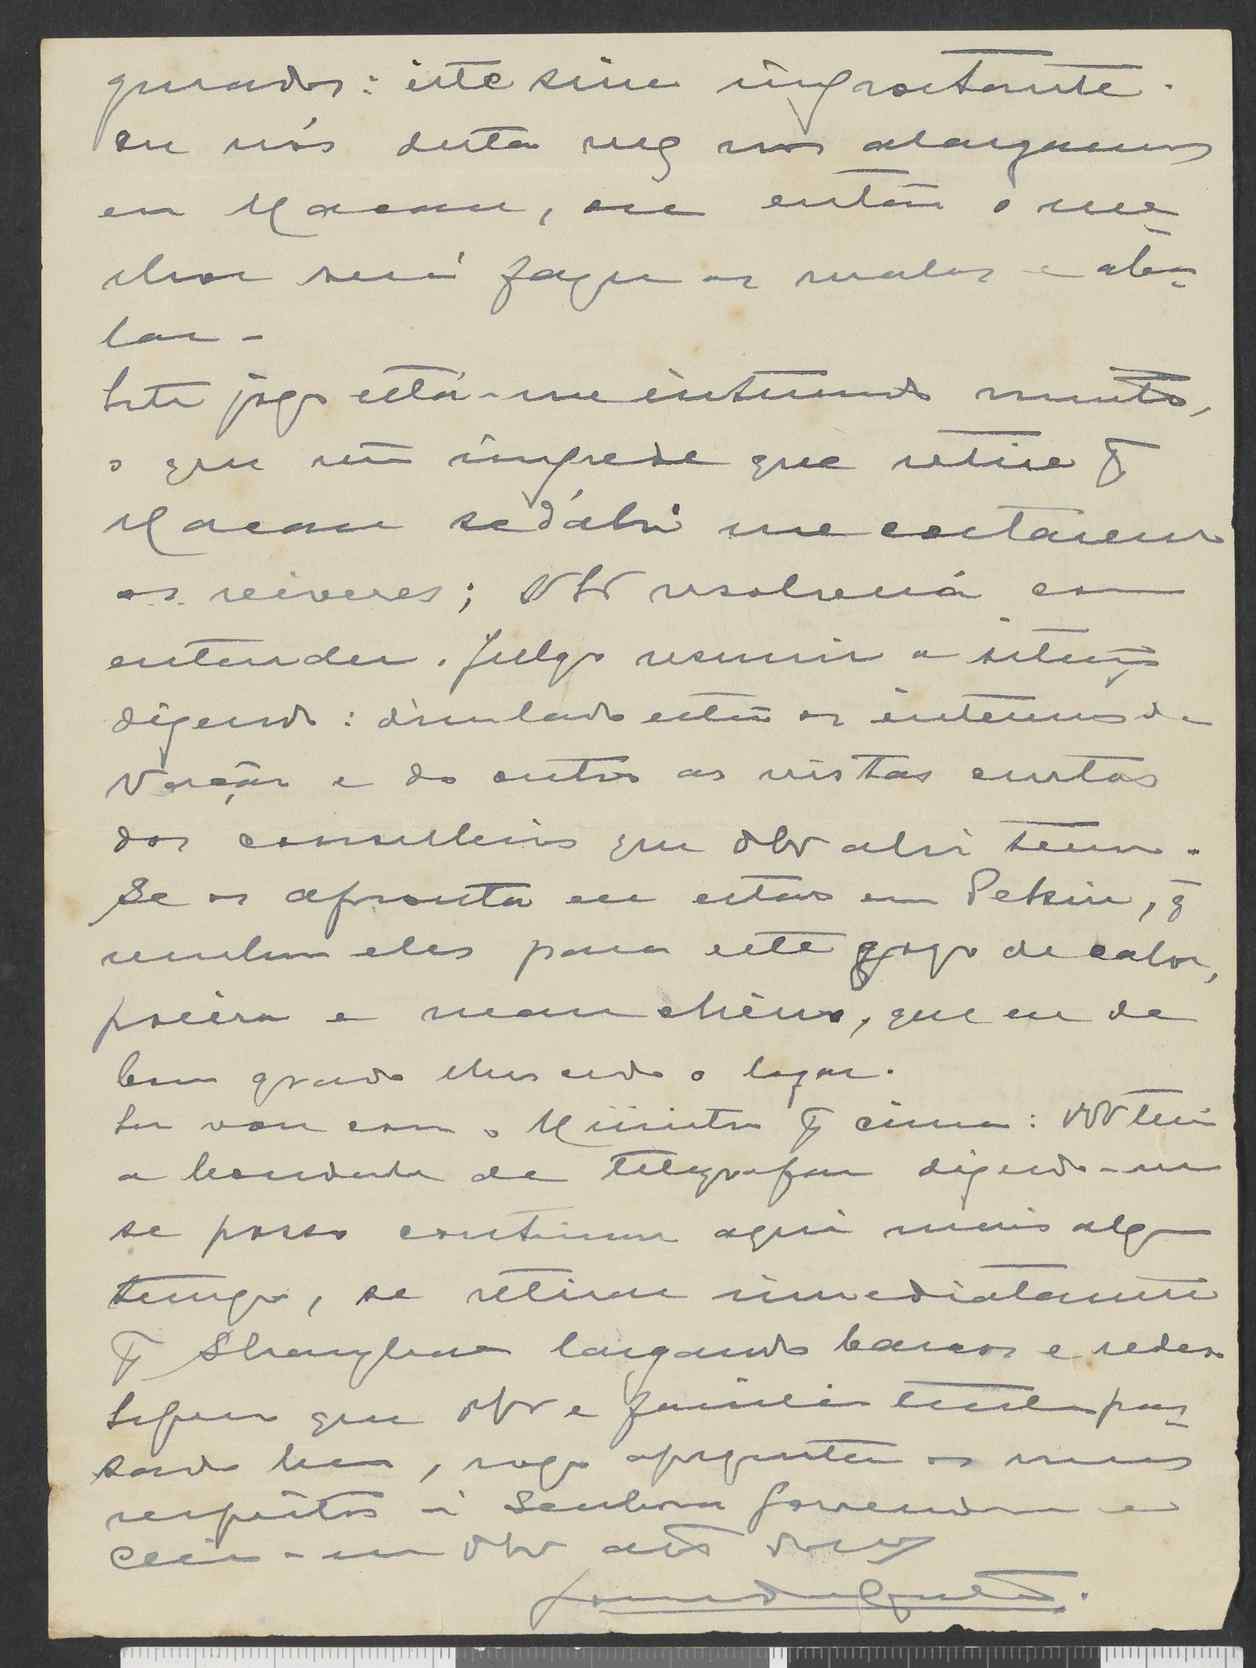 gurados: este sim importante.
ou nós desta vez nos alargamos
em Macau, ou então o me=
lhor será fazer as malas e aba=
lar –
Este jogo está-me interessando muito,
o que não impede que retire pª
Macau se d'ahi me cortarem
os viveres; VExª resolverá como
entender. Julgo resumir a situação
dizendo: d'um lado estão os interesses da
Nação e do outro as vistas curtas
dos conselheiros que VExª ahi tem.
Se os afronta eu estar em Pekin, q̄
venham eles para este gozo de calor,
poeira e mau cheiro, que eu de
bom grado lhes cedo o logar.
Eu vou com o Ministro pª cima: VExª terá
a bondade de telegrafar dizendo-me
se posso continuar aqui mais algum
tempo, se retirar immediatamente
pª Shanghae largando barcos e redes.
Espero que VExª e familia tenham pas=
sado bem, rogo apresentar os meus
respeitos á Senhora
Creia-me VExª